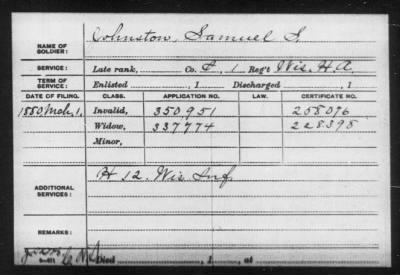 NAME OF SOLDIER: Johnston, Samuel S.
SERVICE: Late rank, Co. F, 1 Reg't Wis. H.A.
TERM OF SERVICE: Enlisted , 1 Discharged , 1
DATE OF FILING. CLASS. APPLICATION NO. LAW. CERTIFICATE NO.
1880, Mch. 1, Invalid, 350951 258076
Widow, 337774 228398
Minor,
ADDITIONAL SERVICES: H 12. Wis Inf
REMARKS:
Died , 1 , at